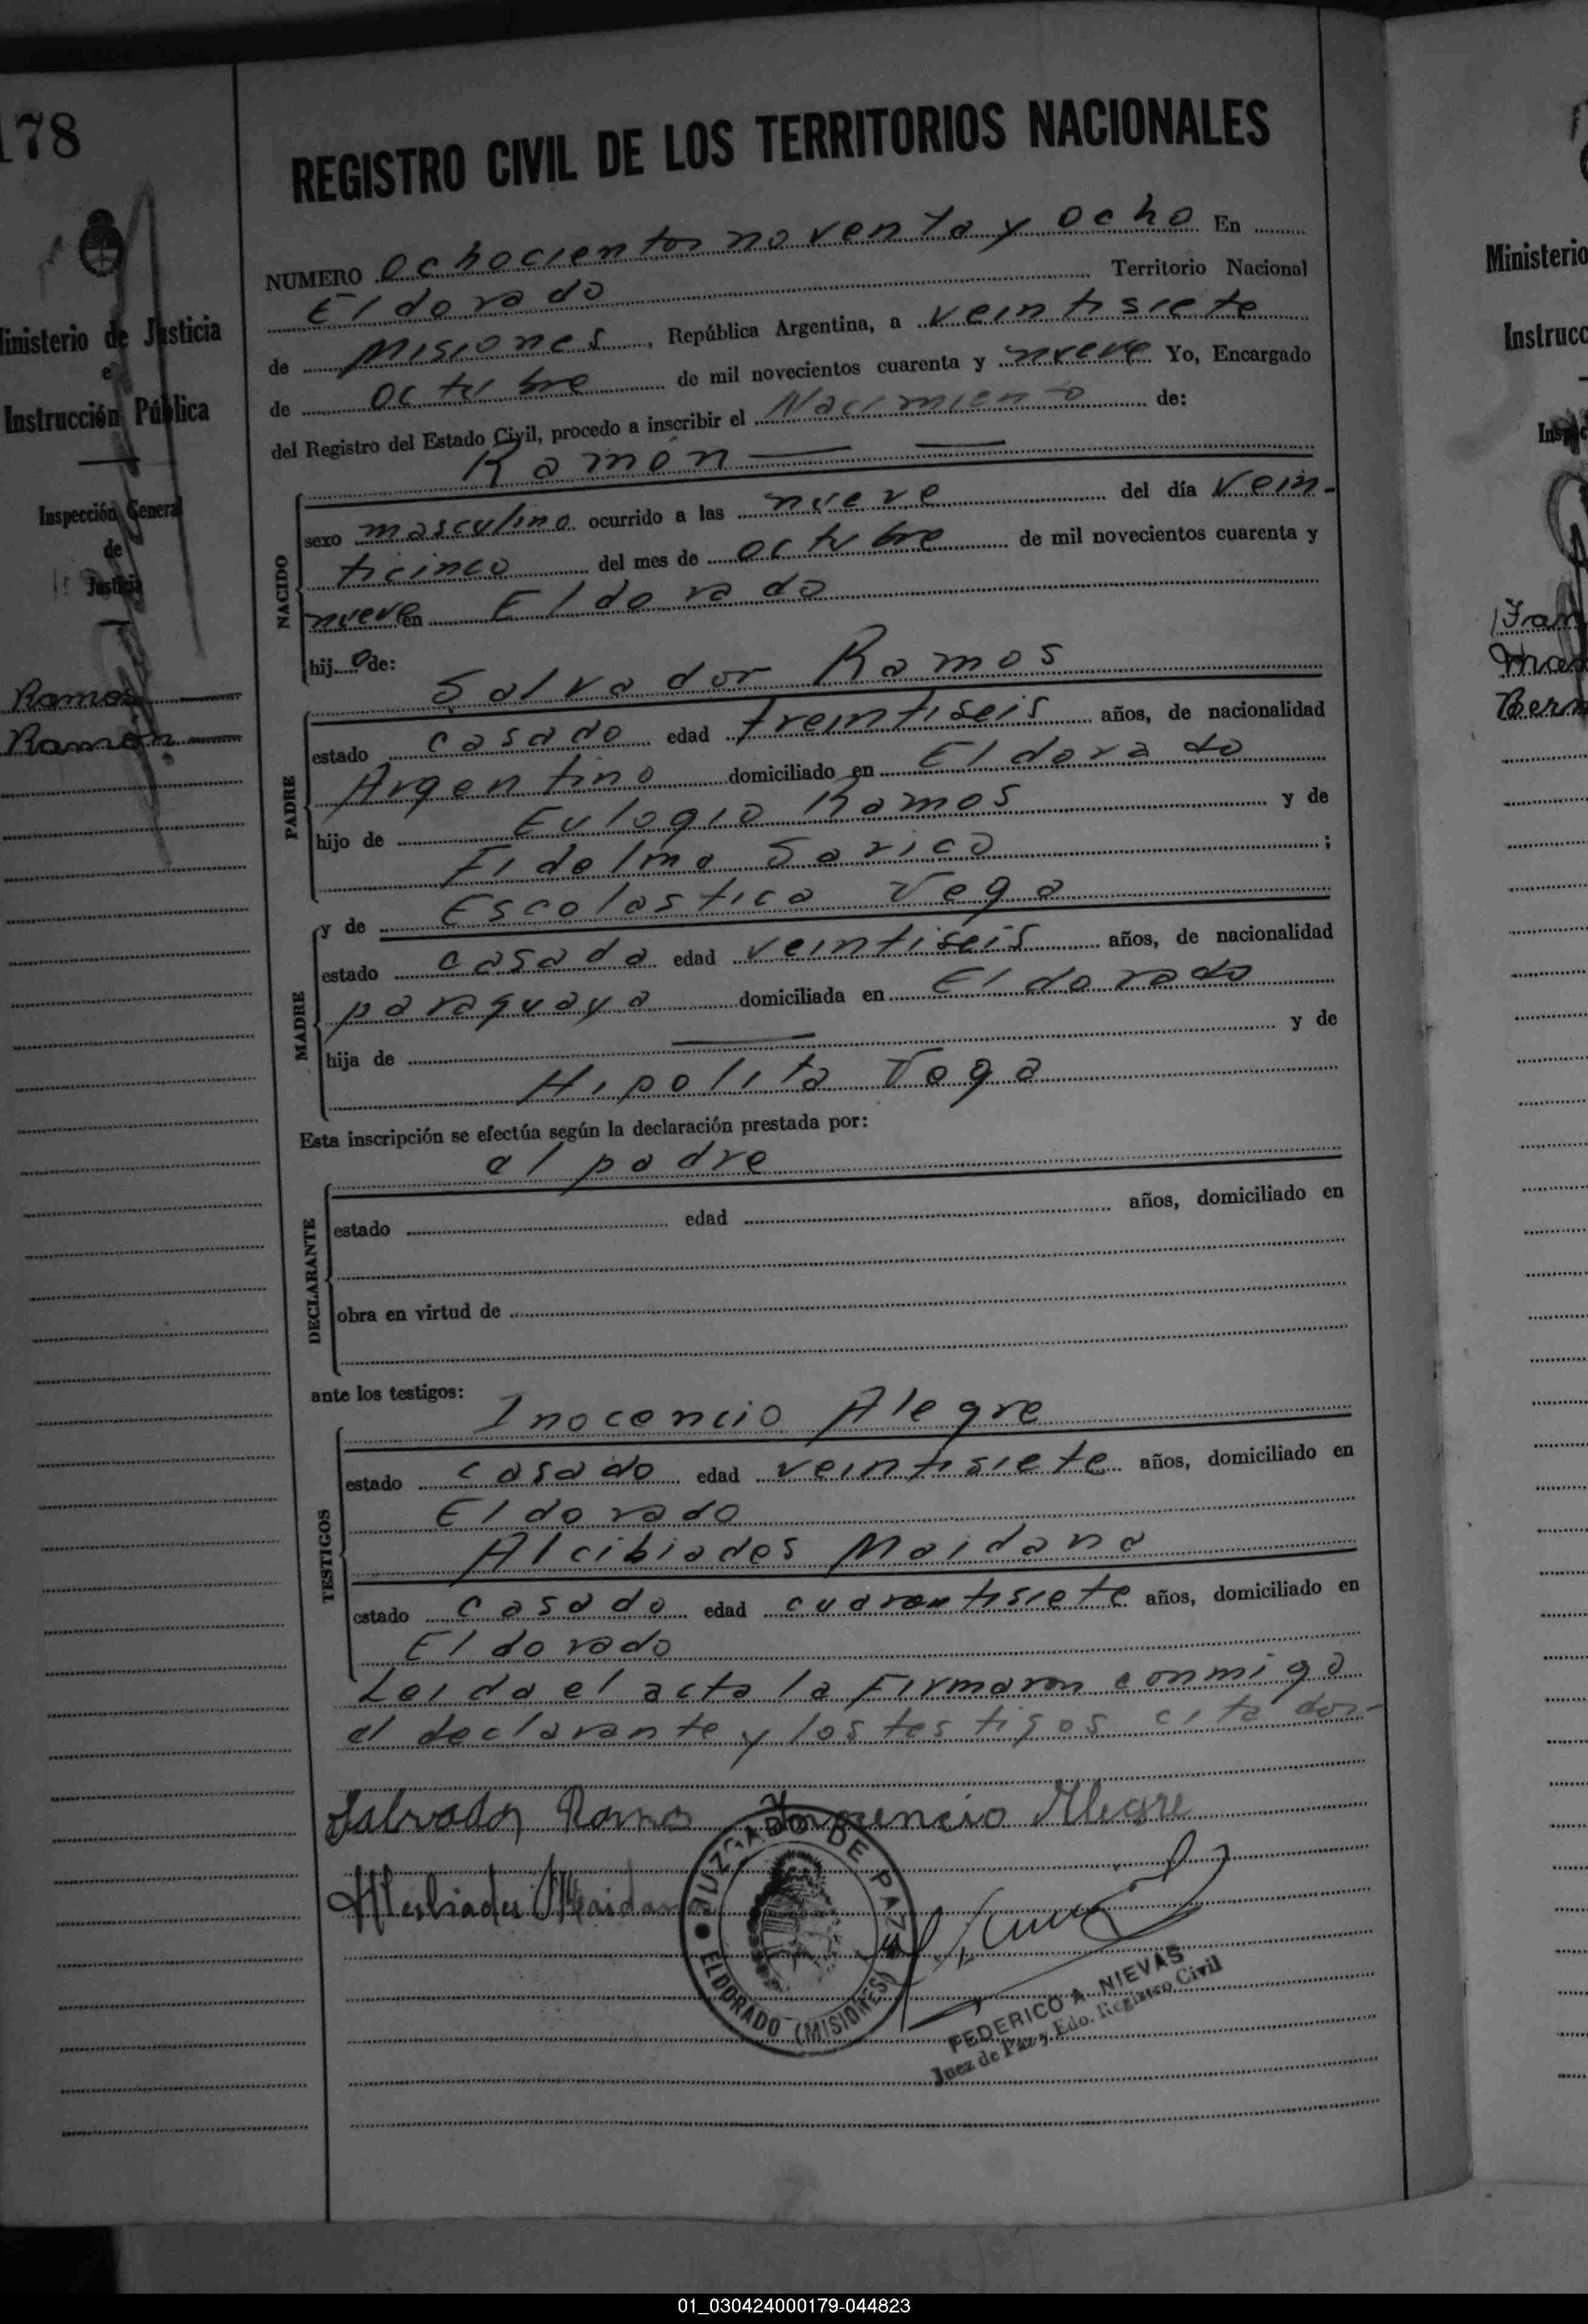 178
Ministerio de Justicia
e
Instrucción Pública
Inspección General
de
Justicia
Ramos
Ramón
REGISTRO CIVIL DE LOS TERRITORIOS NACIONALES
NUMERO Ochocientos noventa y ocho En
Eldorado Territorio Nacional
de Misiones, República Argentina, a veintisiete
de octubre de mil novecientos cuarenta y nueve Yo, Encargado
del Registro del Estado Civil, procedo a inscribir el Nacimiento de:
Ramón
NACIDO
sexo masculino ocurrido a las nueve del día vein-
ticinco del mes de octubre de mil novecientos cuarenta y
nueve en Eldorado
hij o de:
PADRE
Salvador Ramos
estado casado edad treintiseis años, de nacionalidad
Argentino domiciliado en Eldorado
hijo de Eulogio Ramos y de
Fidelma Sarico ;
MADRE
y de Escolastica Vega
estado casada edad veintiseis años, de nacionalidad
paraguaya domiciliada en Eldorado
hija de y de
Hipolita Vega
Esta inscripción se efectúa según la declaración prestada por:
el padre
DECLARANTE
estado edad años, domiciliado en
obra en virtud de
ante los testigos:
TESTIGOS
Inocencio Alegre
estado casado edad veintisiete años, domiciliado en
Eldorado
Alcibiades Maidana
estado casado edad cuarentisiete años, domiciliado en
Eldorado
Leida el acta la Firmaron conmigo
el declarante y los testigos citados-
Salvador Ramos Inocencio Alegre
Alcibiades Maidana
JUZGADO DE PAZ
ELDORADO (MISIONES)
FEDERICO A. NIEVAS
Juez de Paz y Edo. Registro Civil
Ministerio
Instrucc
01_030424000179-044823